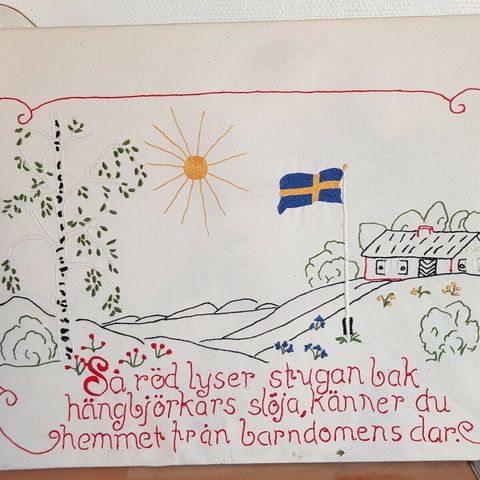 Så röd lyser stugan bak
hängbjörkars slöja, känner du
hemmet från barndomens dar.